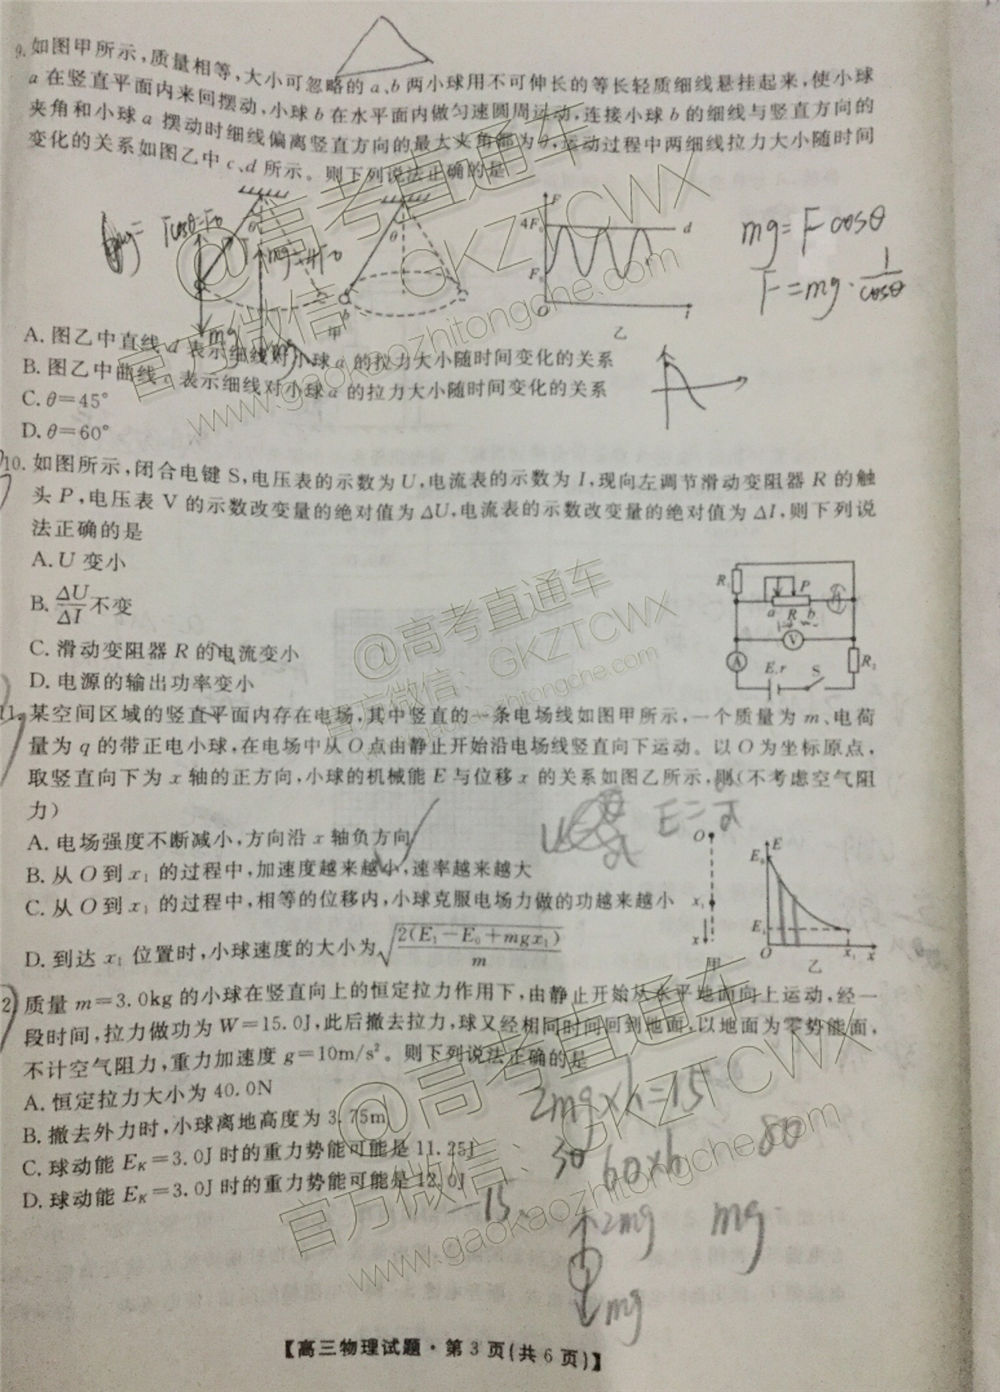 9. 如图甲所示,质量相等,大小可忽略的 a、b 两小球用不可伸长的等长轻质细线悬挂起来,使小球
a 在竖直平面内来回摆动,小球 b 在水平面内做匀速圆周运动,连接小球 b 的细线与竖直方向的
夹角和小球 a 摆动时细线偏离竖直方向的最大夹角都为 θ,运动过程中两细线拉力大小随时间
变化的关系如图乙中 c、d 所示。则下列说法正确的是
mg=Fcosθ
F=mg·1/cosθ
θ
θ
b
甲
F
4F₀
F₀
d
O
t
乙
mg
A. 图乙中直线 d 表示细线对小球 a 的拉力大小随时间变化的关系
B. 图乙中曲线 c 表示细线对小球 a 的拉力大小随时间变化的关系
C. θ=45°
D. θ=60°
10. 如图所示,闭合电键 S,电压表的示数为 U,电流表的示数为 I,现向左调节滑动变阻器 R 的触
头 P,电压表 V 的示数改变量的绝对值为 ΔU,电流表的示数改变量的绝对值为 ΔI,则下列说
法正确的是
A. U 变小
B. ΔU/ΔI 不变
C. 滑动变阻器 R 的电流变小
D. 电源的输出功率变小
P
a R b
V
A
E,r
S
11. 某空间区域的竖直平面内存在电场,其中竖直的一条电场线如图甲所示,一个质量为 m、电荷
量为 q 的带正电小球,在电场中从 O 点由静止开始沿电场线竖直向下运动。以 O 为坐标原点,
取竖直向下为 x 轴的正方向,小球的机械能 E 与位移 x 的关系如图乙所示,则(不考虑空气阻
力)
A. 电场强度不断减小,方向沿 x 轴负方向
B. 从 O 到 x₁ 的过程中,加速度越来越小,速率越来越大
C. 从 O 到 x₁ 的过程中,相等的位移内,小球克服电场力做的功越来越小
D. 到达 x₁ 位置时,小球速度的大小为√(2(E₁−E₀+mgx₁)/m)
O
x₁
x
甲
E
E₀
E₁
O
x₁
x
乙
12. 质量 m=3.0kg 的小球在竖直向上的恒定拉力作用下,由静止开始从水平地面向上运动,经一
段时间,拉力做功为 W=15.0J,此后撤去拉力,球又经相同时间回到地面,以地面为零势能面,
不计空气阻力,重力加速度 g=10m/s²。则下列说法正确的是
A. 恒定拉力大小为 40.0N
B. 撤去外力时,小球离地高度为 3.75m
C. 球动能 Eₖ=3.0J 时的重力势能可能是 11.25J
D. 球动能 Eₖ=3.0J 时的重力势能可能是 12.0J
2mg×h=15
30
60×h
80
-15
2mg
mg
mg
【高三物理试题·第 3 页(共 6 页)】
@高考直通车
官方微信：GKZTCWX
www.gaokaozhitongche.com
@高考直通车
官方微信：GKZTCWX
www.gaokaozhitongche.com
@高考直通车
官方微信：GKZTCWX
www.gaokaozhitongche.com